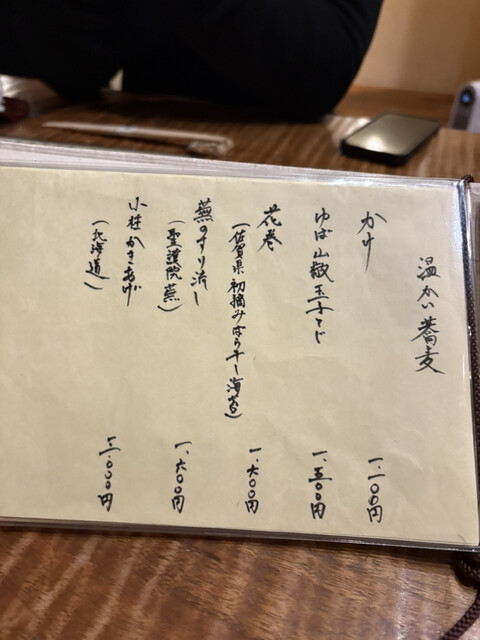 温かい蕎麦
かけ 一、一〇〇円
ゆば山椒玉子とじ 一、五〇〇円
花巻 一、六〇〇円
(佐賀県初摘みばら干し海苔)
蕪のすり流し 一、六〇〇円
(聖護院蕪)
小柱かきあげ 二、〇〇〇円
(北海道)